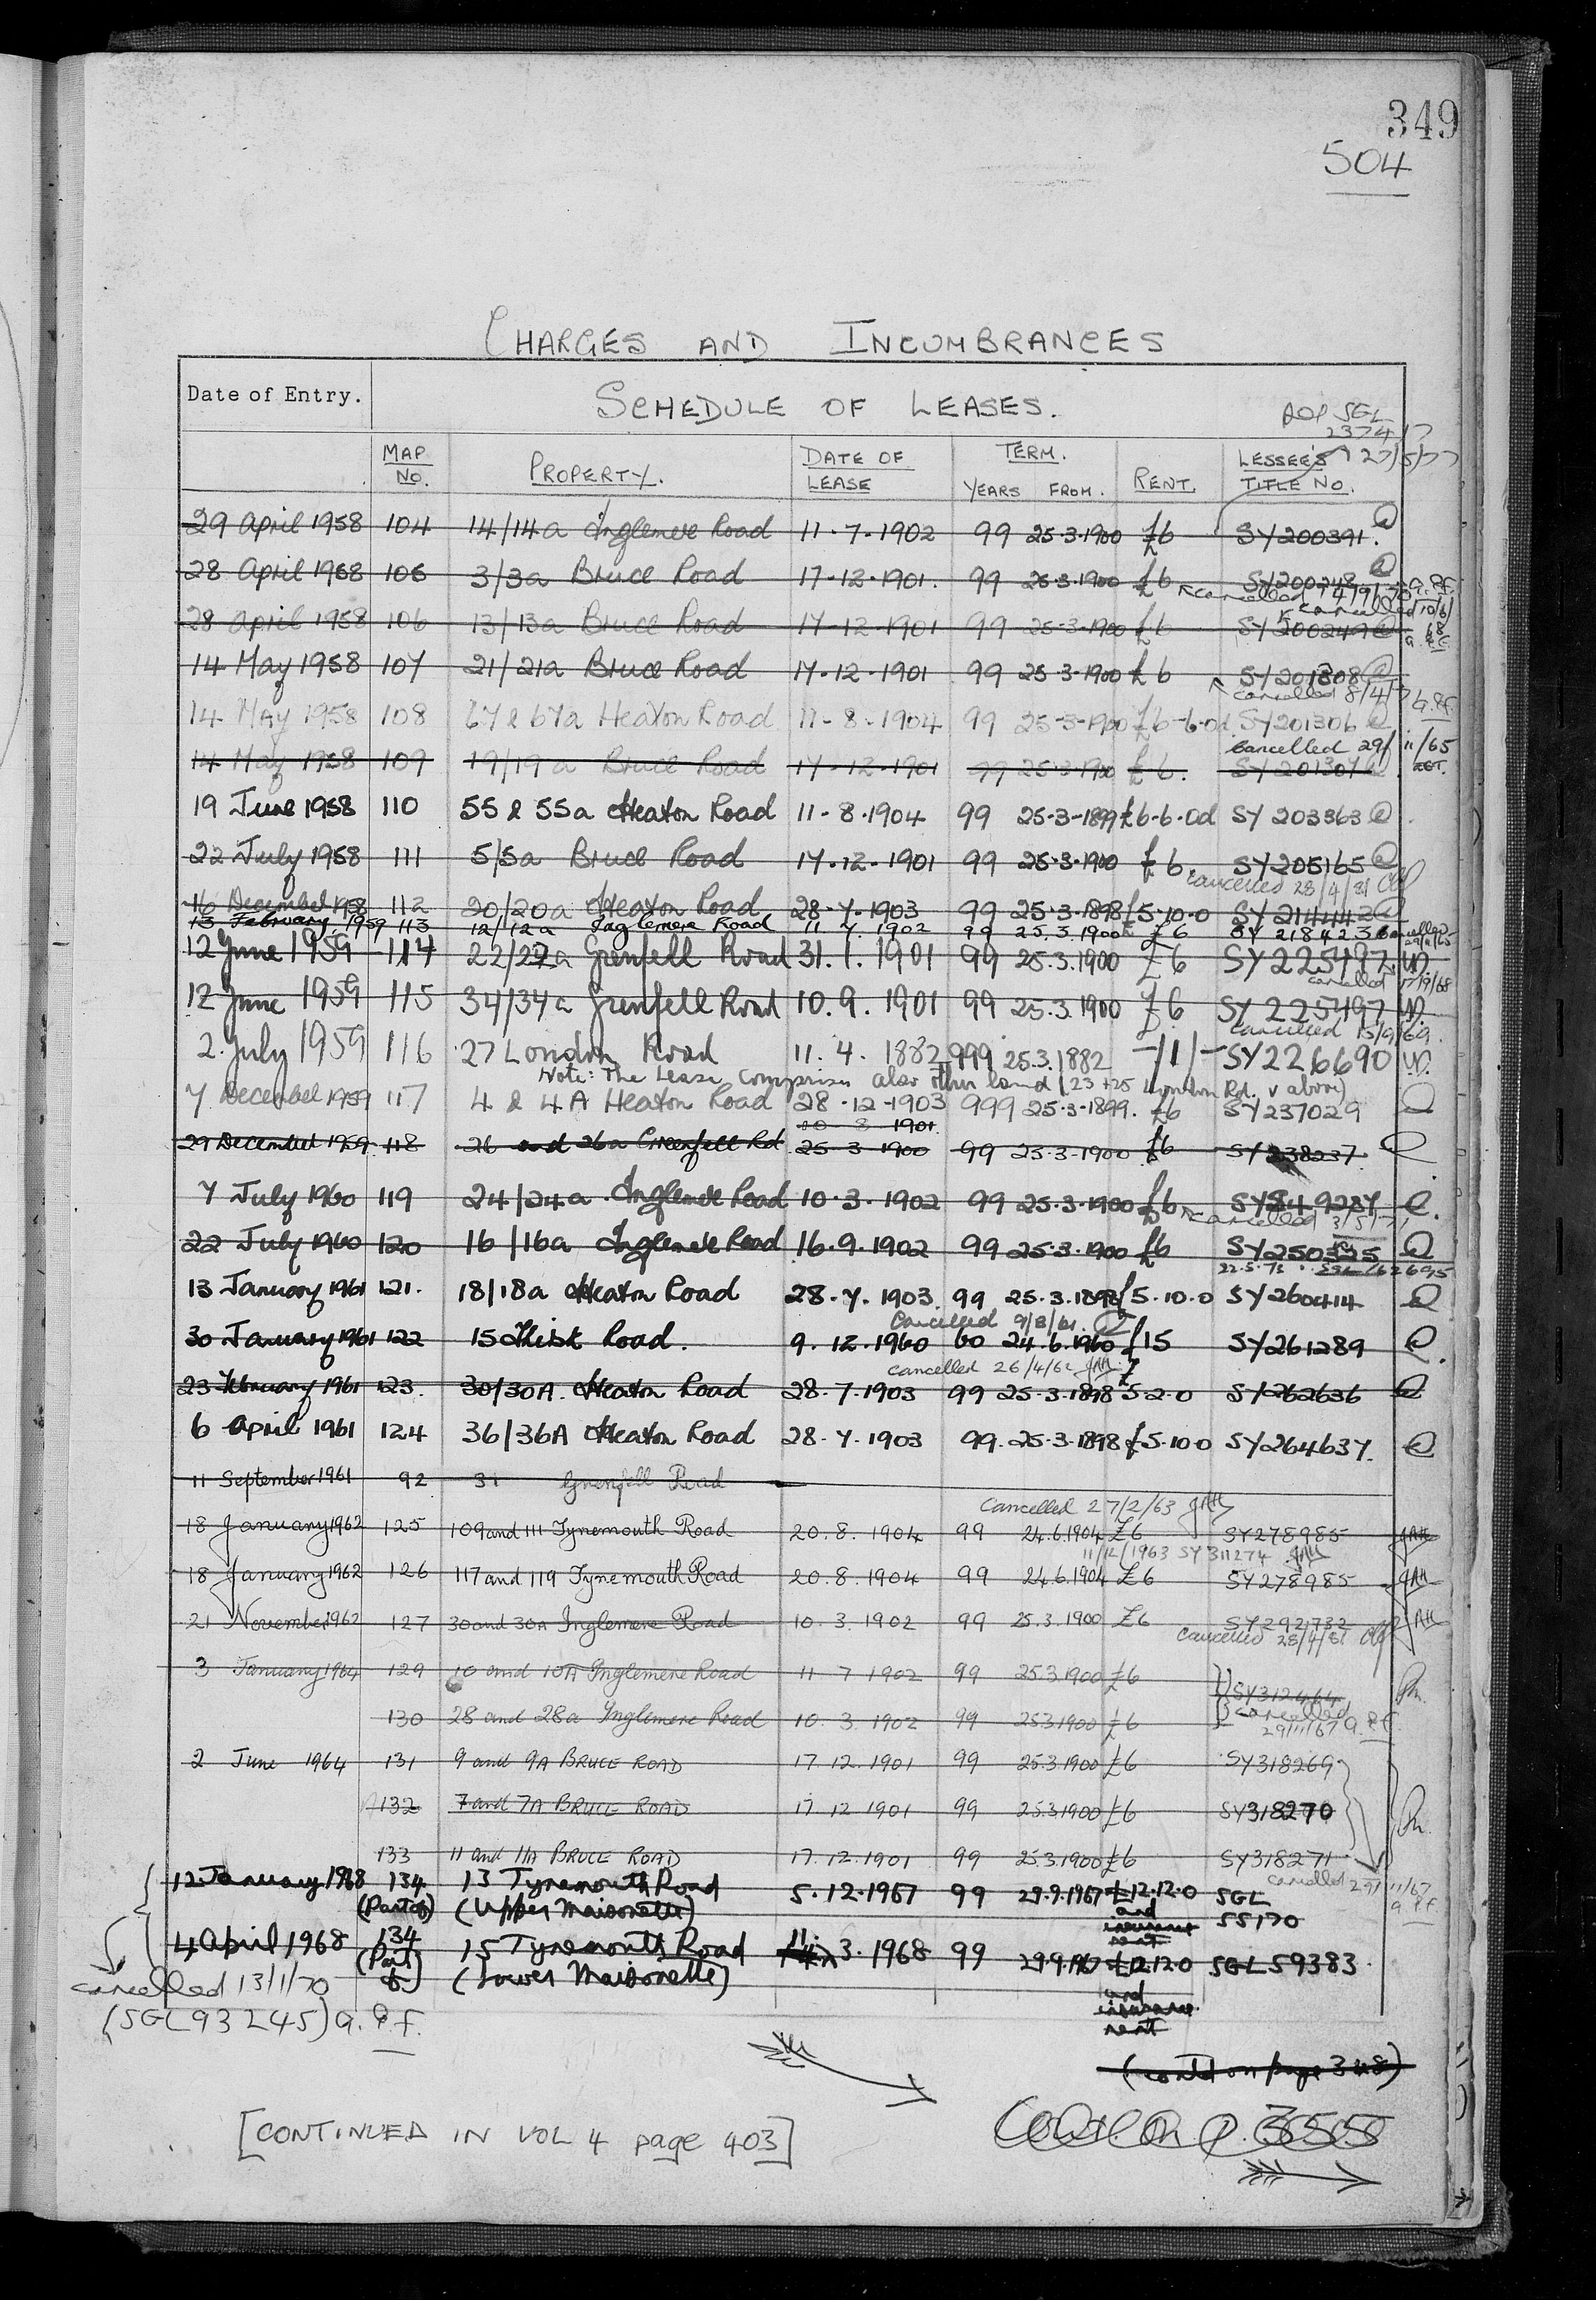 349
504
CHARGES AND INCUMBRANCES
Date of Entry. SCHEDULE OF LEASES.
MAP NO. PROPERTY. DATE OF LEASE TERM. YEARS FROM. RENT. LESSEE'S TITLE NO. 27/5/77
29 April 1958 104 14/14a Inglemere Road 11.7.1902 99 25.3.1900 £6 SY200391.
28 April 1958 105 3/3a Bruce Road 17.12.1901. 99 25.3.1900 £6 SY200248
cancelled
cancelled 10/6/
28 April 1958 106 13/13a Bruce Road 17-12-1901 99 25-3-1900 £6 SY200249
14 May 1958 107 21/21a Bruce Road 17.12.1901 99 25.3.1900 £6 SY201308
cancelled 8/4/
14 May 1958 108 67 & 67a Heaton Road 11-8-1904 99 25-3-1900 £6-6-0d SY201306
Cancelled 29/11/65
14 May 1958 109 19/19a Bruce Road 17-12-1901 99 25.3.1900 £6. SY201307
19 June 1958 110 55 & 55a Heaton Road 11-8.1904 99 25-3-1899 £6-6-0d SY203363
22 July 1958 111 5/5a Bruce Road 17.12.1901 99 25.3.1900 £6. SY205165
cancelled 28/4/81
16 December 1958 112 20/20a Heaton Road 28-7-1903 99 25.3.1898 £5-10-0 SY214442
13 February 1959 113 12/12a Inglemere Road 11.7.1902 99 25.3.1900 £6 SY218423 cancelled
12 June 1959 114 22/22a Grenfell Road 31.1.1901 99 25.3.1900 £6 SY225497
cancelled 17/9/68
12 June 1959 115 34/34a Grenfell Road 10.9.1901 99 25.3.1900 £6 SY225497
cancelled 15/9/69.
2 July 1959 116 27 London Road 11.4.1882 999 25.3.1882 -/1/- SY226690
Note: The Lease comprises also other land (23 + 25 London Rd. v above)
7 December 1959 117 4 & 4A Heaton Road 28-12-1903 999 25-3-1899. £6 SY237029
20 8 1901
29 December 1959 118 26 and 26a Grenfell Rd 25 3 1900 99 25-3-1900 £6 SY238237.
7 July 1960 119 24/24a Inglemere Road 10.3.1902 99 25.3.1900 £6 SY249287
cancelled 3/5/71
22 July 1960 120 16/16a Inglemere Road 16.9.1902 99 25.3.1900 £6 SY250325
13 January 1961 121. 18/18a Heaton Road 28.7.1903. 99 25.3.1898 £5.10.0 SY260414
Cancelled 9/8/61.
30 January 1961 122 15 Thirsk Road. 9.12.1960 60 24.6.1960 £15 SY261289
cancelled 26/4/62
23 February 1961 123. 30/30A. Heaton Road 28.7.1903 99 25.3.1898 £5.2.0 SY262636
6 April 1961 124 36/36A Heaton Road 28.7.1903 99. 25.3.1898 £5.10.0 SY264637.
11 September 1961 92 31 Grenfell Road
Cancelled 27/2/63
18 January 1962 125 109 and 111 Tynemouth Road 20.8.1904 99 24.6.1904 £6 SY278985
11/12/1963 SY311274
18 January 1962 126 117 and 119 Tynemouth Road 20.8.1904 99 24.6.1904 £6 SY278985
21 November 1962 127 30 and 30A Inglemere Road 10.3.1902 99 25.3.1900 £6 SY292732
Cancelled 28/4/81
3 January 1964 129 10 and 10A Inglemere Road 11 7 1902 99 25.3.1900 £6 SY312464
130 28 and 28a Inglemere Road 10.3.1902 99 25.3.1900 £6 cancelled 29/11/67
2 June 1964 131 9 and 9A BRUCE ROAD 17.12.1901 99 25.3.1900 £6 SY318269
132 7 and 7A BRUCE ROAD 17.12.1901 99 25.3.1900 £6 SY318270
133 11 and 11A BRUCE ROAD 17.12.1901 99 25.3.1900 £6 SY318271
cancelled 29/11/67
12 January 1968 134 (Part of) 13 Tynemouth Road (Upper Maisonette) 5.12.1967 99 29.9.1967 £12.12.0 and insurance rent SGL 55170
4 April 1968 134 (Part of) 15 Tynemouth Road (Lower Maisonette) 11.3.1968 99 29.9.1967 £12.12.0 and insurance rent SGL 59383
cancelled 13/1/70
(SGL93245) G.P.F.
(contd on page 348)
[CONTINUED IN VOL 4 page 403]
Contd. on p. 355